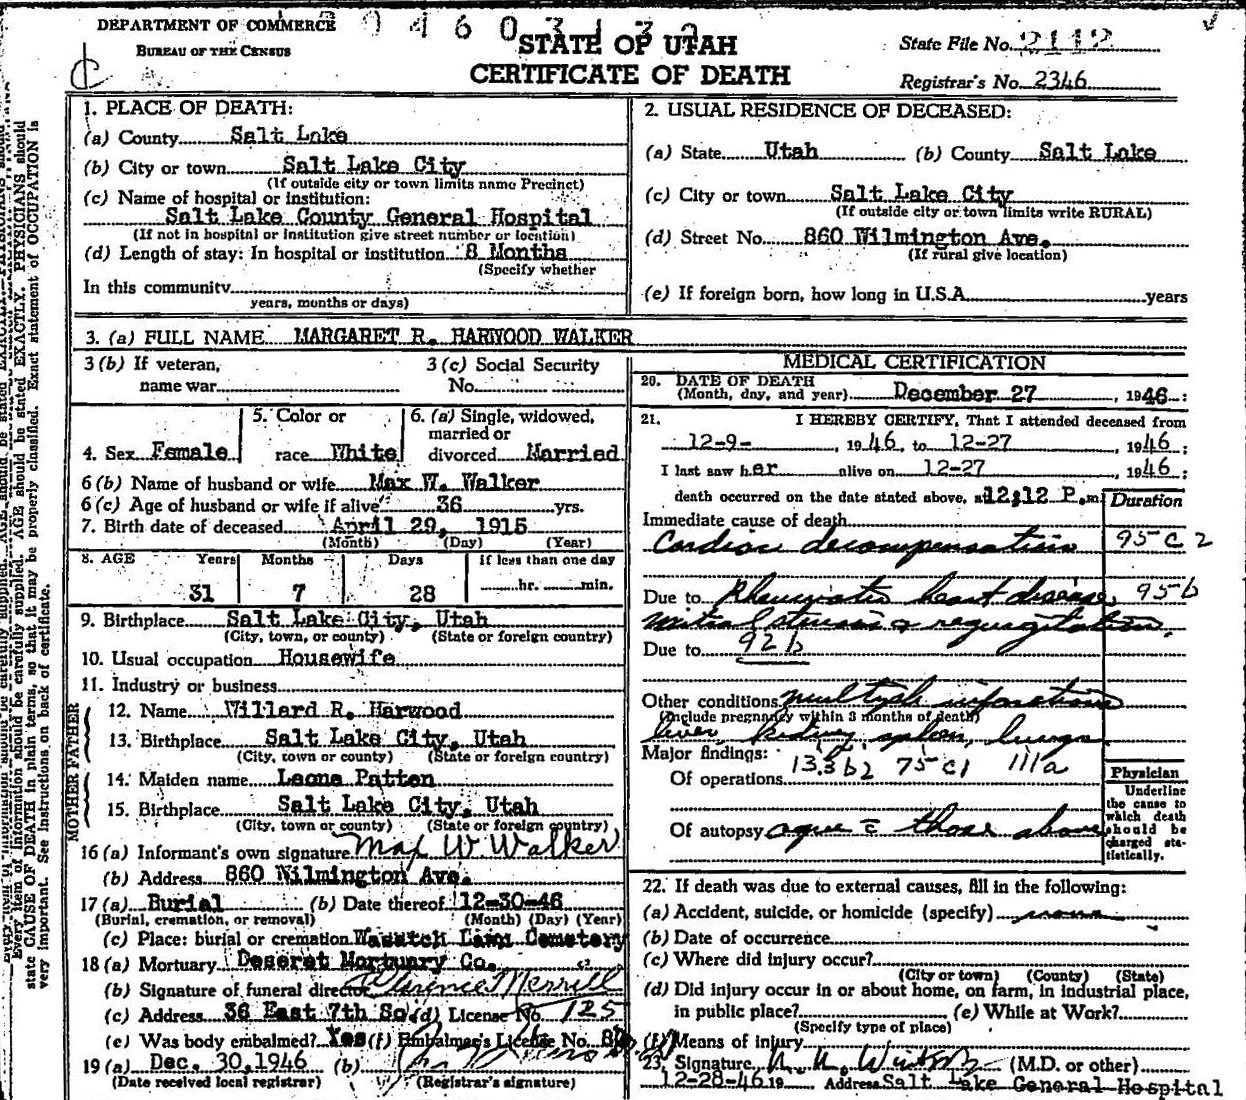 DEPARTMENT OF COMMERCE
BUREAU OF THE CENSUS
STATE OF UTAH
CERTIFICATE OF DEATH
State File No. 2112
Registrar's No. 2346
1. PLACE OF DEATH:
(a) County Salt Lake
(b) City or town Salt Lake City
(If outside city or town limits name Precinct)
(c) Name of hospital or institution:
Salt Lake County General Hospital
(If not in hospital or institution give street number or location)
(d) Length of stay: In hospital or institution 8 Months
(Specify whether
In this community
years, months or days)
2. USUAL RESIDENCE OF DECEASED:
(a) State Utah (b) County Salt Lake
(c) City or town Salt Lake City
(If outside city or town limits write RURAL)
(d) Street No. 860 Wilmington Ave.
(If rural give location)
(e) If foreign born, how long in U.S.A. years
3. (a) FULL NAME MARGARET R. HARWOOD WALKER
3 (b) If veteran,
name war
3 (c) Social Security
No.
4. Sex Female
5. Color or
race White
6. (a) Single, widowed,
married or
divorced Married
6 (b) Name of husband or wife Max W. Walker
6 (c) Age of husband or wife if alive 36 yrs.
7. Birth date of deceased April 29, 1915
(Month) (Day) (Year)
8. AGE Years Months Days If less than one day
31 7 28 hr. min.
9. Birthplace Salt Lake City, Utah
(City, town, or county) (State or foreign country)
10. Usual occupation Housewife
11. Industry or business
FATHER
12. Name Willard R. Harwood
13. Birthplace Salt Lake City, Utah
(City, town, or county) (State or foreign country)
MOTHER
14. Maiden name Leona Patten
15. Birthplace Salt Lake City, Utah
(City, town or county) (State or foreign country)
16 (a) Informant's own signature Max W. Walker
(b) Address 860 Wilmington Ave.
17 (a) Burial (b) Date thereof 12-30-46
(Burial, cremation, or removal) (Month) (Day) (Year)
(c) Place: burial or cremation Wasatch Lawn Cemetery
18 (a) Mortuary Deseret Mortuary Co.
(b) Signature of funeral director Clarence Merrill
(c) Address 36 East 7th So. (d) License No. 125
(e) Was body embalmed? Yes (f) Embalmer's License No.
19 (a) Dec. 30, 1946 (b)
(Date received local registrar) (Registrar's signature)
MEDICAL CERTIFICATION
20. DATE OF DEATH
(Month, day, and year) December 27, 1946;
21. I HEREBY CERTIFY, That I attended deceased from
12-9- 1946, to 12-27 1946;
I last saw her alive on 12-27 1946;
death occurred on the date stated above, at 12:12 P.m.
Duration
Immediate cause of death
Cardiac decompensation 95 c 2
Due to Rheumatic heart disease, 95-b
mitral stenosis & regurgitation
Due to 92b
Other conditions multiple infarctions
(Include pregnancy within 3 months of death)
liver, kidney, spleen, lungs
Major findings:
Of operations 133b2 75c1 111a
Of autopsy agree c̄ those above
Physician
Underline
the cause to
which death
should be
charged sta-
tistically.
22. If death was due to external causes, fill in the following:
(a) Accident, suicide, or homicide (specify) none
(b) Date of occurrence
(c) Where did injury occur?
(City or town) (County) (State)
(d) Did injury occur in or about home, on farm, in industrial place,
in public place? (e) While at Work?
(Specify type of place)
(f) Means of injury
23. Signature (M.D. or other)
12-28-46 19 Address Salt Lake General Hospital